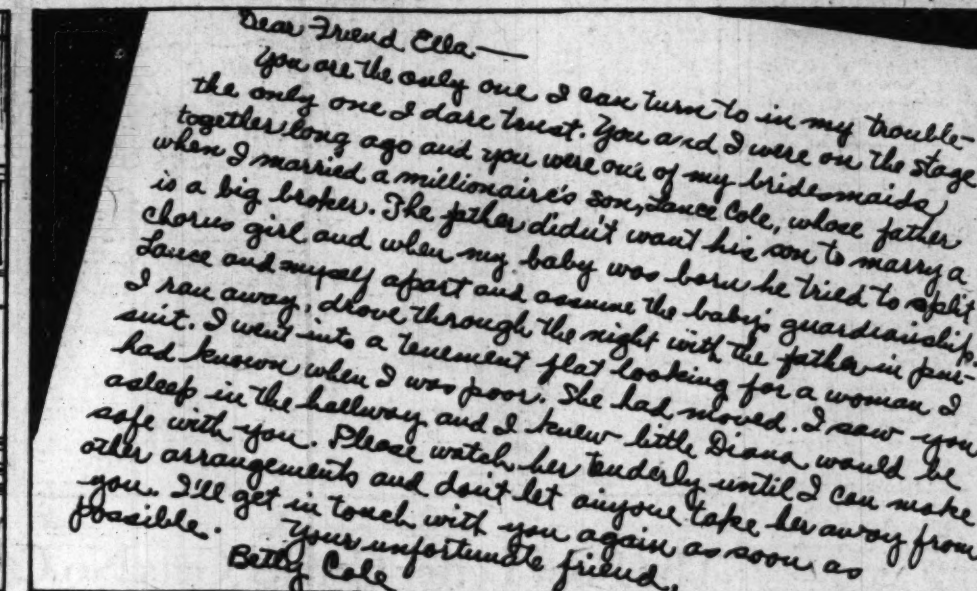 Dear Friend Ella—
You are the only one I can turn to in my trouble-
the only one I dare trust. You and I were on the stage
together long ago and you were one of my bridesmaids
when I married a millionaire's son, Lance Cole, whose father
is a big broker. The father didn't want his son to marry a
chorus girl and when my baby was born he tried to split
Lance and myself apart and assume the baby's guardianship.
I ran away, drove through the night with the father in pur-
suit. I went into a tenement flat looking for a woman I
had known when I was poor. She had moved. I saw you
asleep in the hallway and I knew little Diana would be
safe with you. Please watch her tenderly until I can make
other arrangements and don't let anyone take her away from
you. I'll get in touch with you again as soon as
possible.
Your unfortunate friend,
Betty Cole